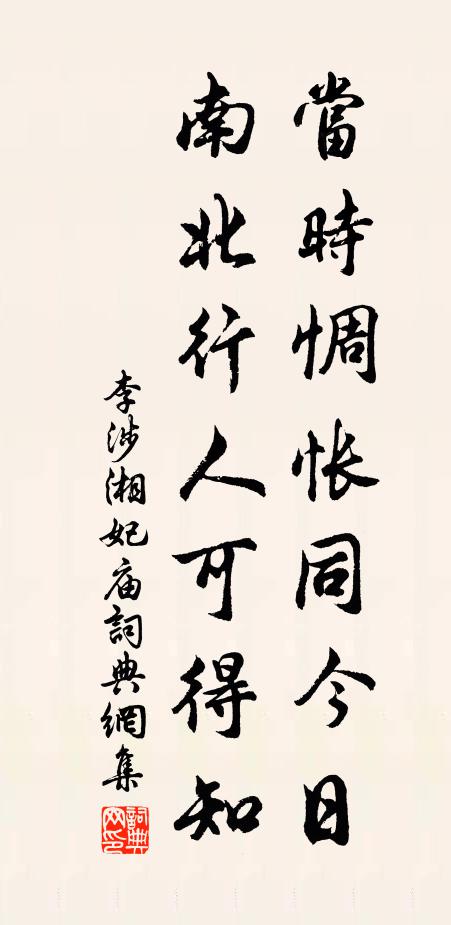 當時惆怅同今日
南北行人可得知
李涉湘妃庙詞典網集
詞典
网印